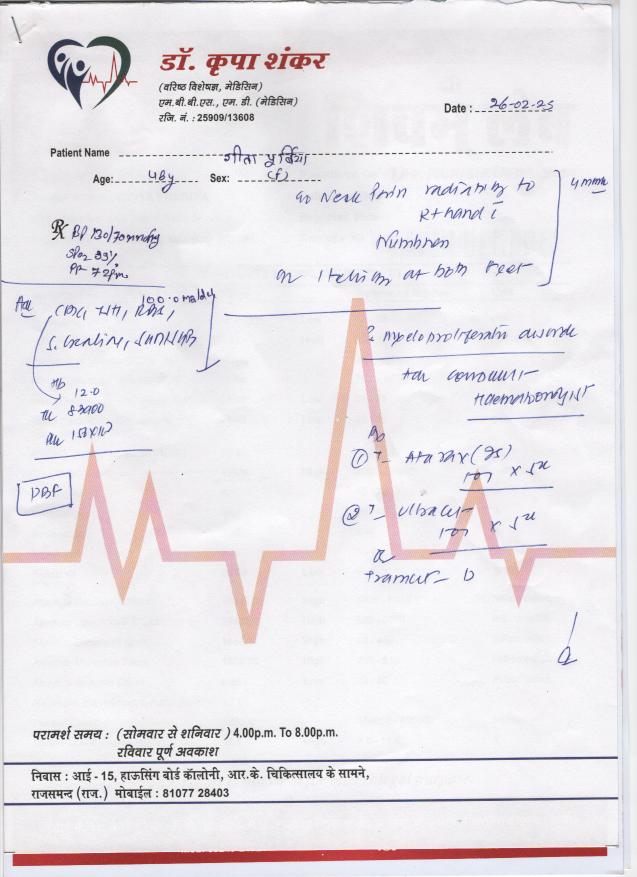 डॉ. कृपा शंकर
(वरिष्ठ विशेषज्ञ, मेडिसिन)
एम.बी.बी.एस., एम. डी. (मेडिसिन)
रजि. नं. : 25909/13608
Date : 26-02-25
Patient Name गीता पूर्बिया
Age: 48y Sex: (f)
c/o Neck Pain radiating to
Rt hand
Numbness
Itching at both feet
Rx BP 130/70 mmHg
SPO2 99%
PR 72
CBC,
S. Creatinine,
Hb 12.0
83900
PBF
? myeloproliferative disorder
Adv consult
Haematologist
Rx
① T- Atarax (25)
1०1 x 5d
② T- Ultracet
1०1 x 5d
Tramcet- D
परामर्श समय : (सोमवार से शनिवार ) 4.00p.m. To 8.00p.m.
रविवार पूर्ण अवकाश
निवास : आई - 15, हाऊसिंग बोर्ड कॉलोनी, आर.के. चिकित्सालय के सामने,
राजसमन्द (राज.) मोबाईल : 81077 28403